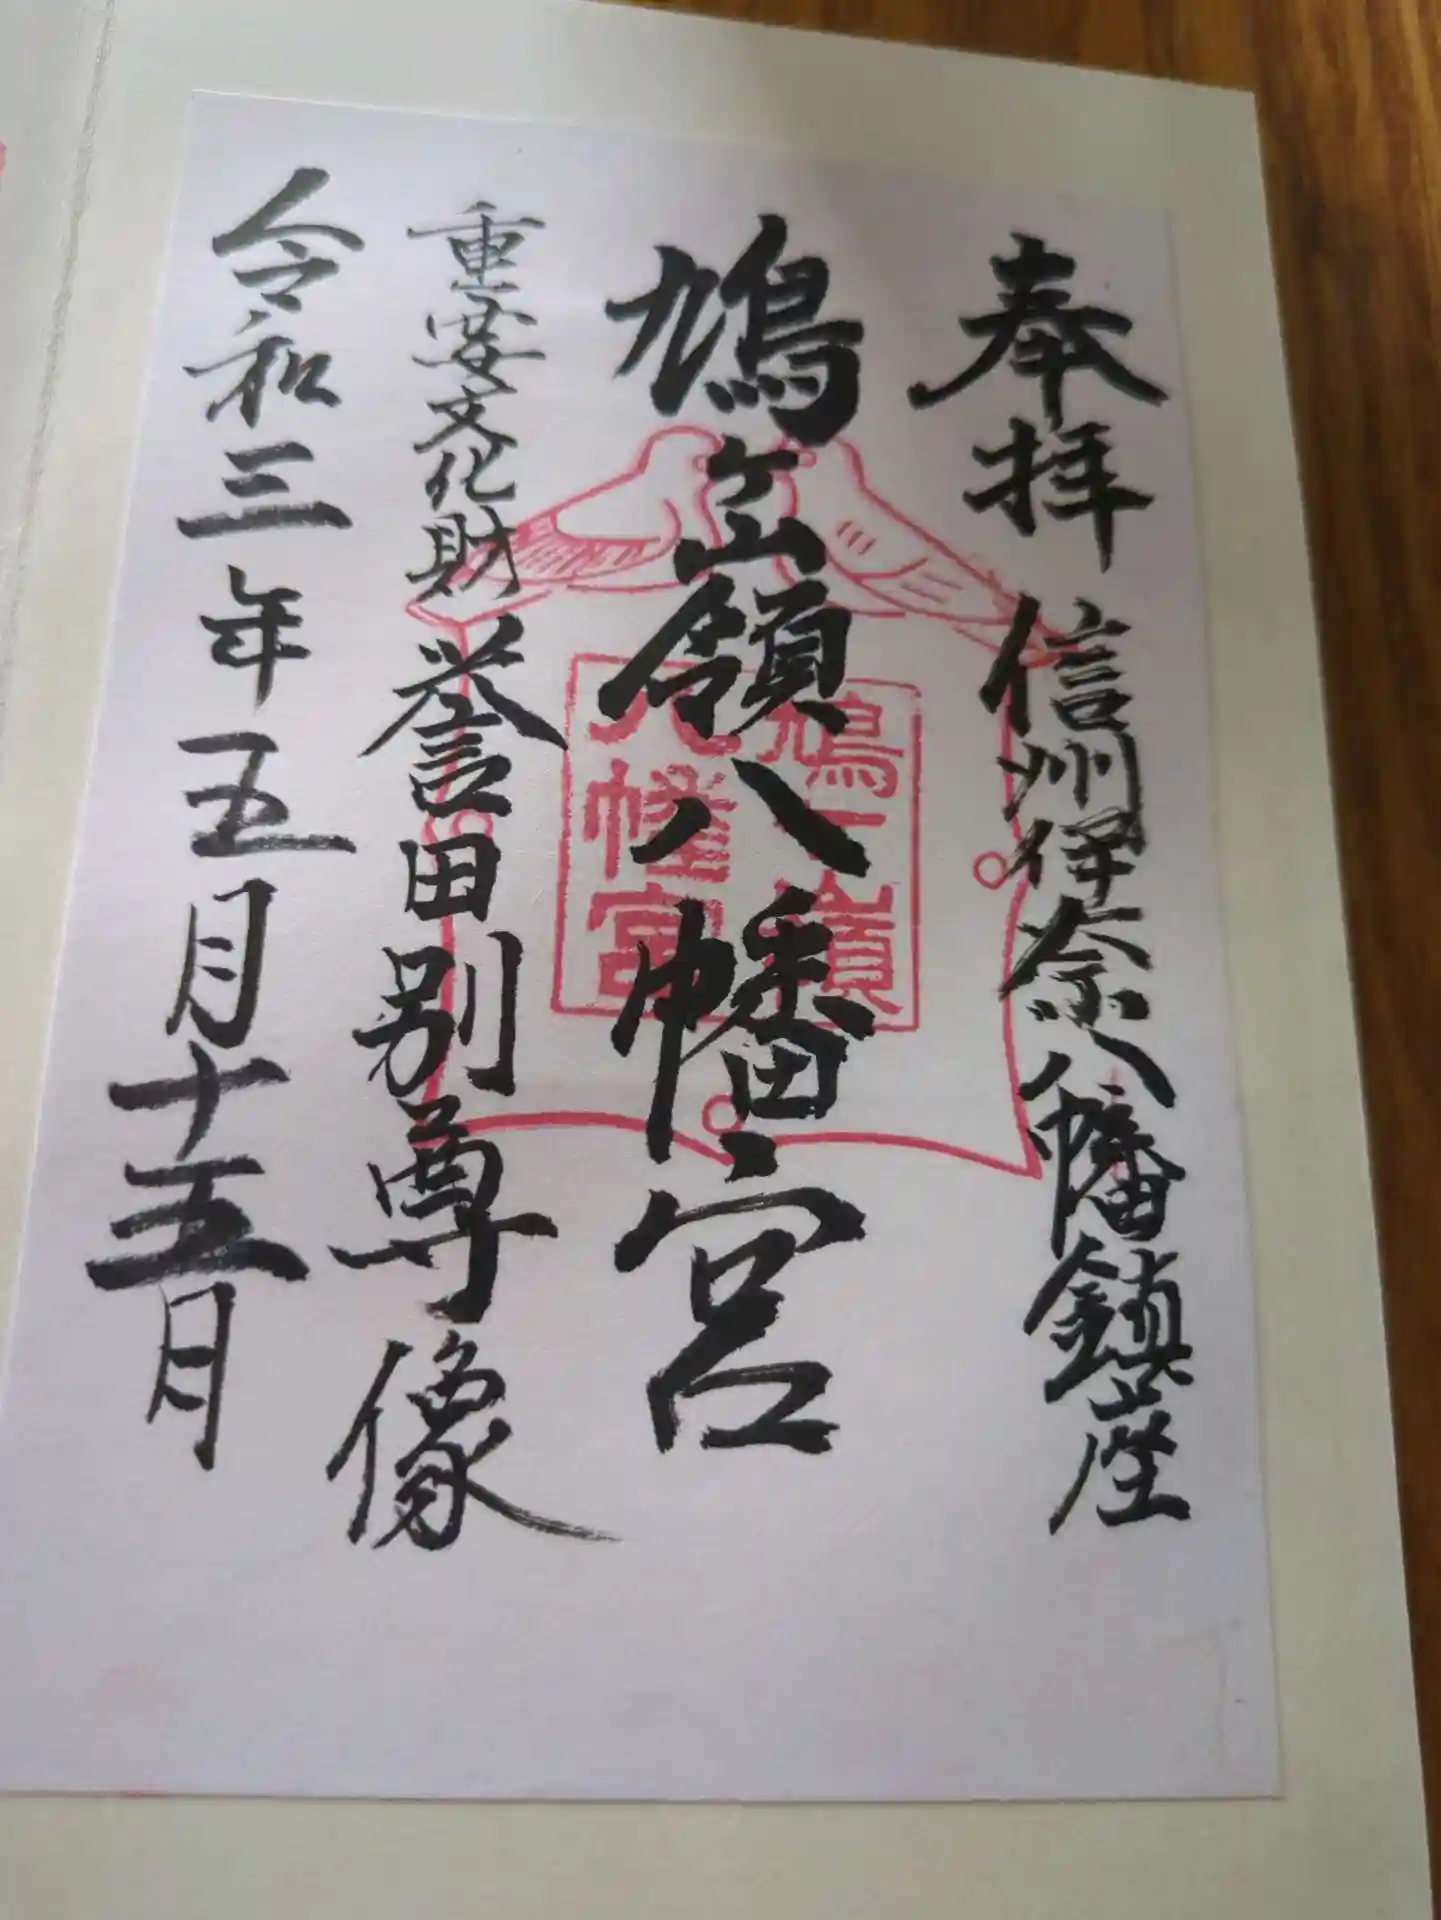 奉拝 信州伊奈八幡鎮座
鳩ヶ嶺八幡宮
重要文化財 誉田別尊像
令和三年五月十五日
鳩ヶ嶺
八幡宮